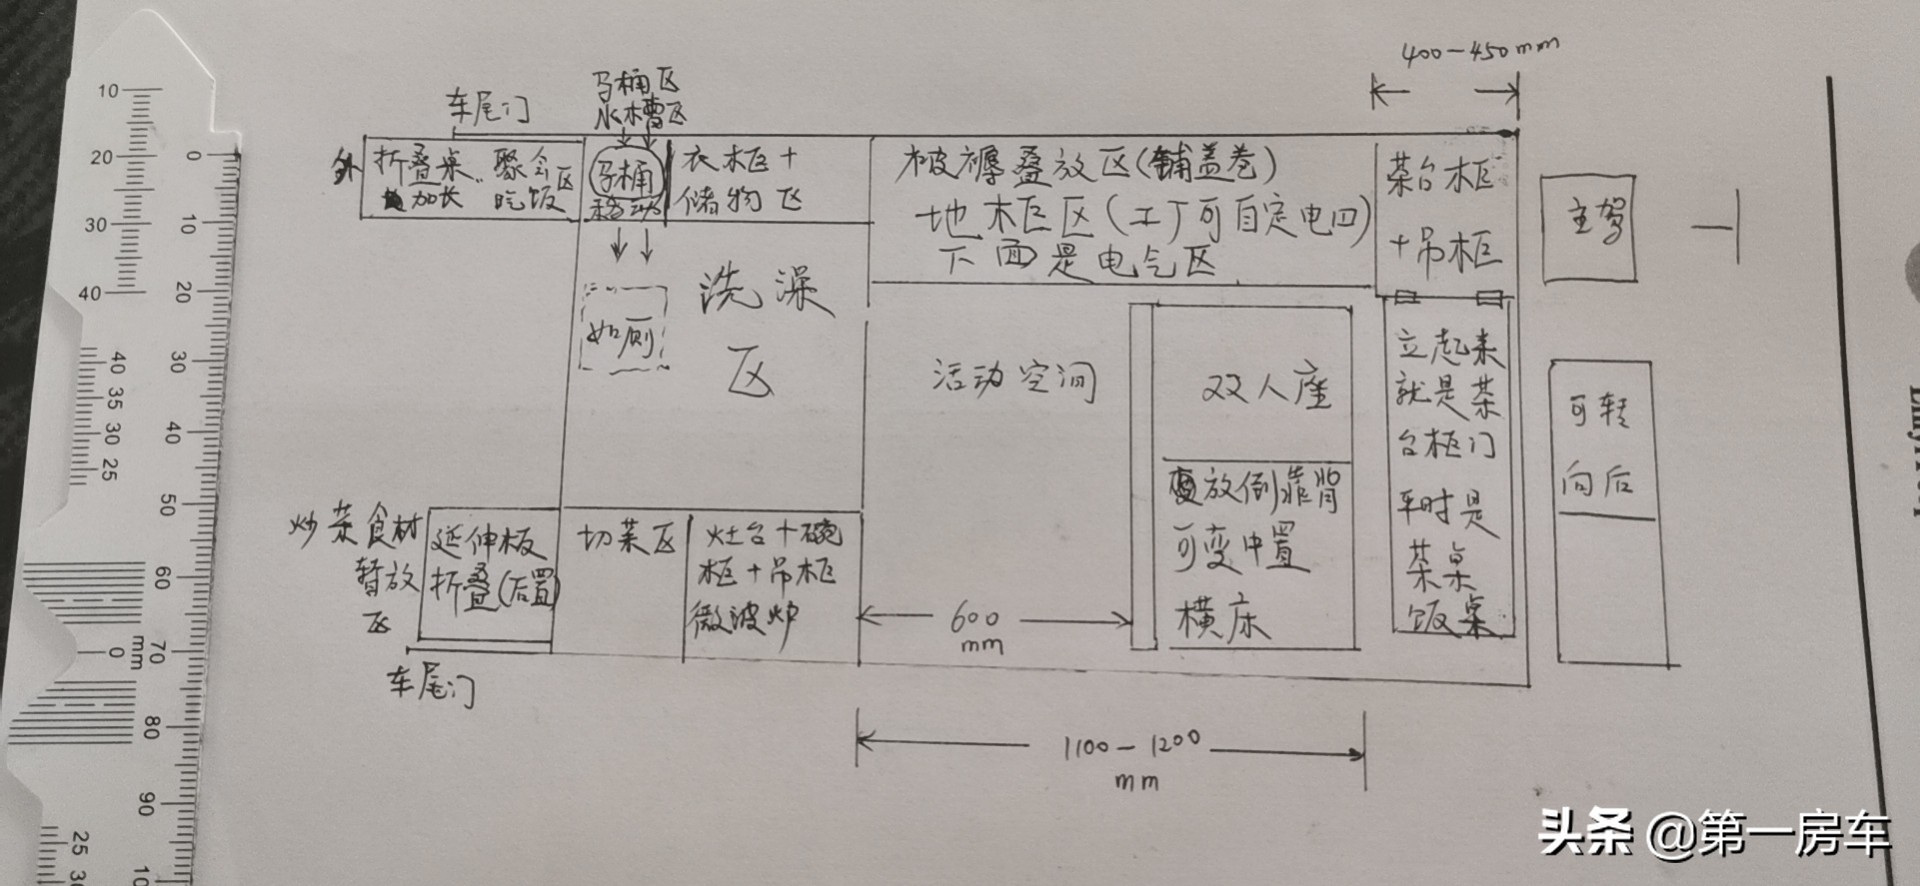 400-450mm
马桶区
水槽区
车尾门
外
折叠桌
加长
聚会
吃饭
区
马桶
移动
衣柜+
储物区
被褥叠放区(铺盖卷)
地柜区(工厂可自定电四)
下面是电气区
茶台柜
+吊柜
主驾
如厕
洗澡
区
活动空间
双人座
放倒靠背
可变中置
横床
立起来
就是茶
台柜门
平时是
茶桌
饭桌
可转
向后
炒菜食材
暂放
区
延伸板
折叠(后置)
切菜区
灶台+碗
柜+吊柜
微波炉
600
mm
车尾门
1100-1200
mm
10
20
30
40
40
35
30
25
0
mm
0
10
20
30
40
50
60
70
80
90
10
25
头条 @第一房车